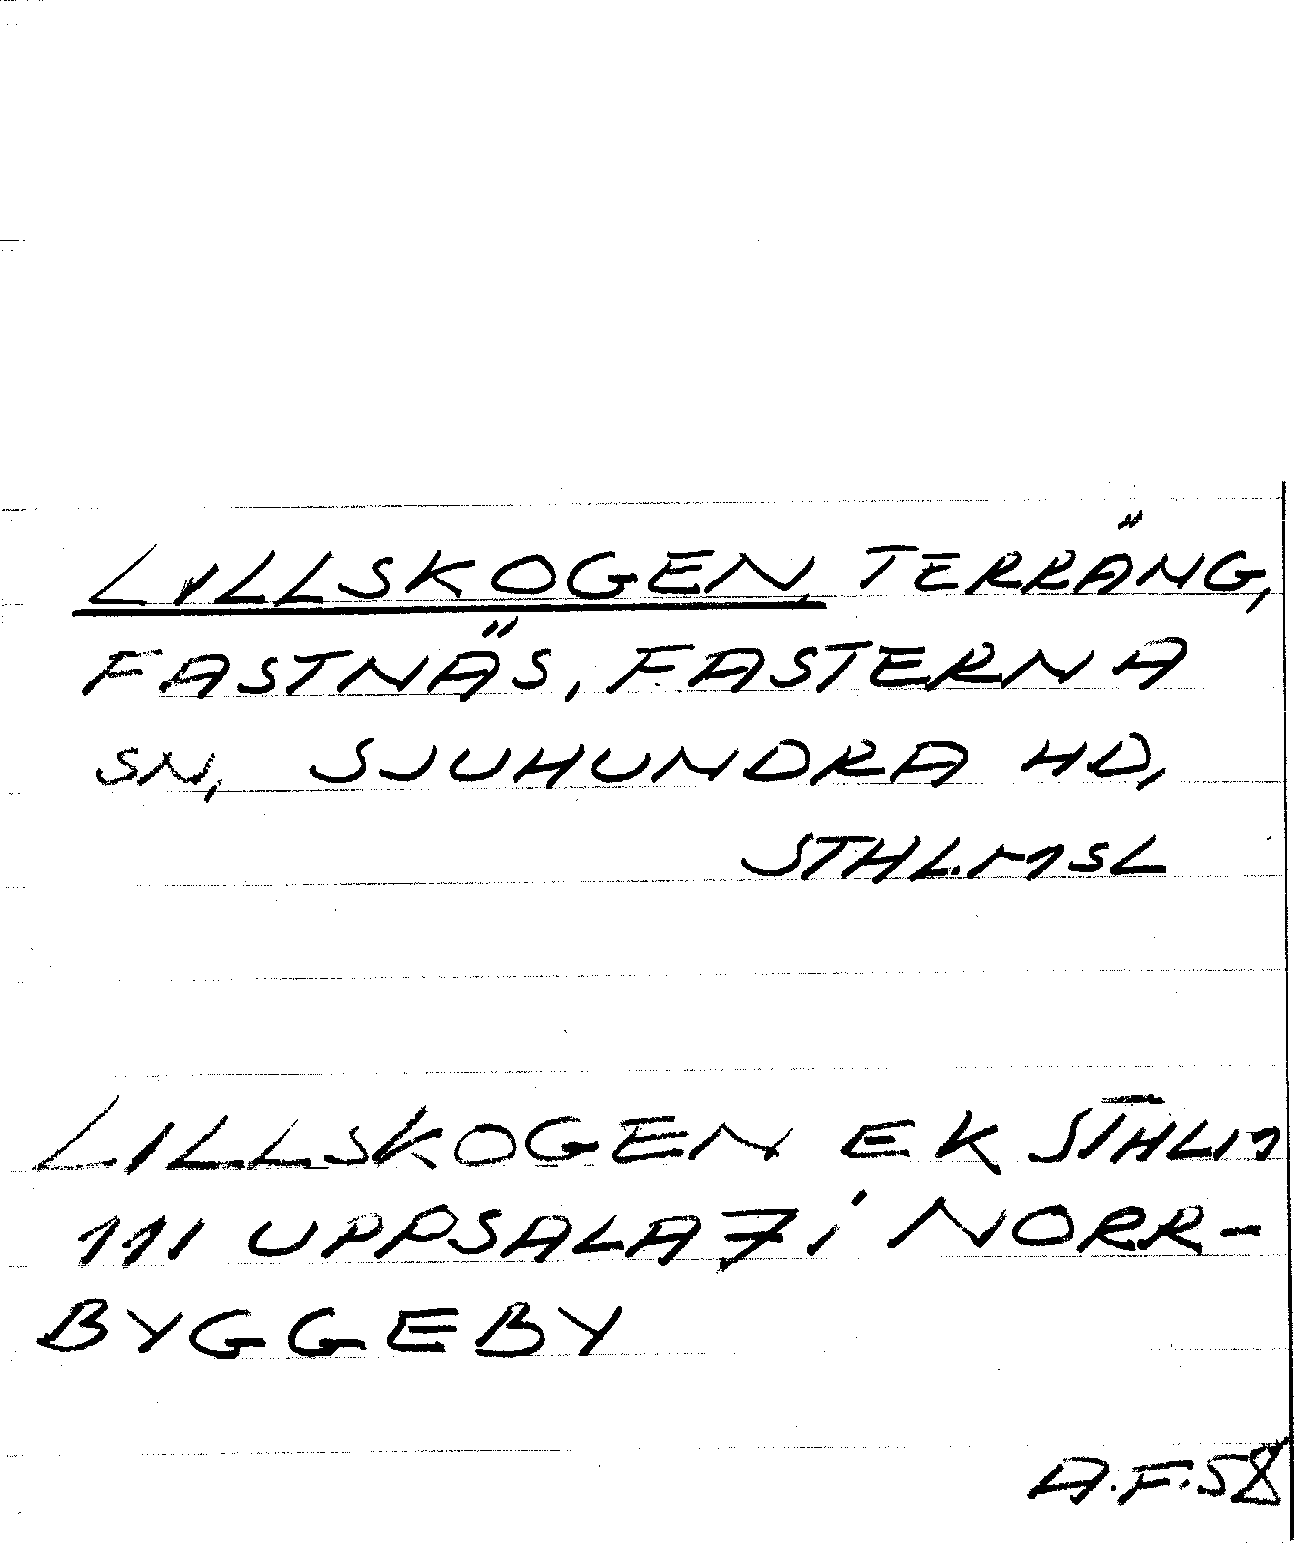 LILLSKOGEN, TERRÄNG,
FASTNÄS, FASTERNA
SN, SJUHUNDRA HD,
STHLMSL
LILLSKOGEN EK STHLM
111 UPPSALA 7 i NORR-
BYGGEBY
A.F.58